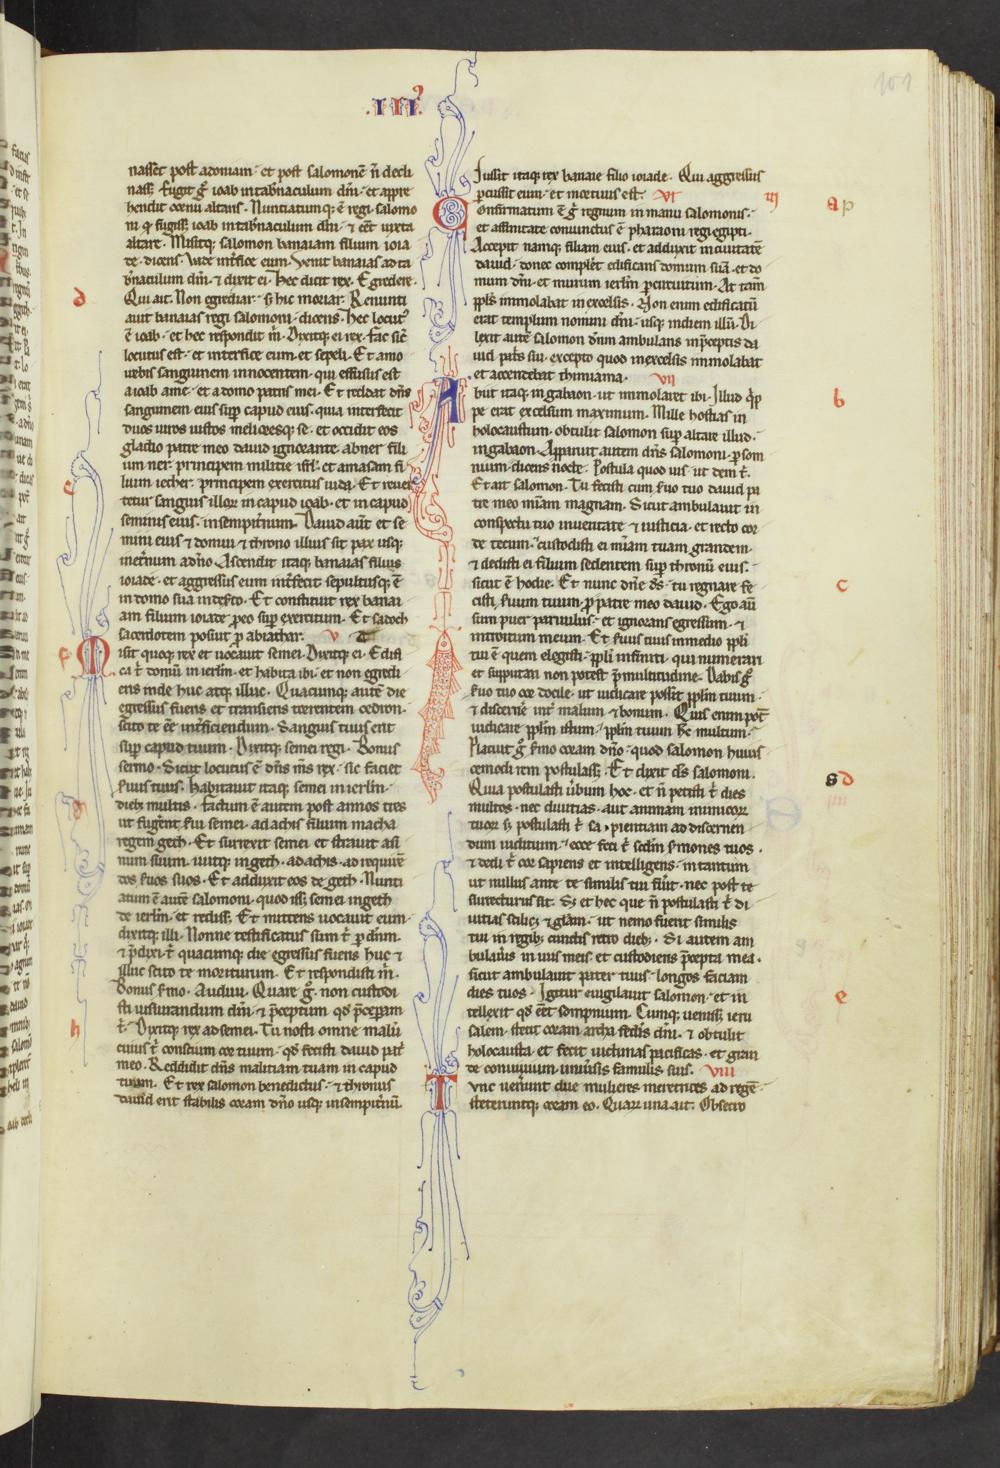 .III⁹
101
nasset post adoniam · et post salomonē n̄ decli
nass; fugit g̊ ioab in tab̄naculum dn̄i · et appre
hendit cornu altaris · Nuntiatumq; ē regi · salomo
ni q̄ fugiss; ioab in tab̄naculum dn̄i · ⁊ eēt iuxta
altare · Misitq; salomon banaiam filium ioia
de · dicens · Vade int̄fice eum · Venit banaias ad ta
b̄naculum dn̄i · ⁊ dixit ei · Hec dicit rex · Egredere ·
d
Qui ait · Non egrediar · s; hic moriar · Renunti
auit banaias regi salomoni · dicens · Hec locut⁹
ē ioab · et hec respondit m̄ · Dixitq; ei rex · fac sic̄
locutus est · et interfice eum · et sepeli · Et amo
uebis sanguinem innocentem · qui effusus est
a ioab a me · et a domo patris mei · Et reddat dn̄s
sanguinem eius sup̄ caput eius · quia interfecit
duos uiros iustos melioresq; se · et occidit eos
gladio patre meo dauid ignorante · abner fili
um ner · principem militie isrl̄ · et amasam fi
e
lium iether · principem exercitus iuda · Et reuer
tetur sanguis illoꝝ in caput ioab · et in caput
seminis eius · in sempit̄num · Dauid aūt et se
mini eius ⁊ domui ⁊ throno illius sit pax usq;
inet̄num a dn̄o · Ascendit itaq; banaias filius
ioiade · et aggressus eum int̄fecit sepultusq; ē
in domo sua in deserto · Et constituit rex banai
am filium ioiade p̄ eo sup̄ exercitum · Et sadoch
sacerdotem posuit p̄ abiathar · V
f
Misit quoq; rex et uocauit semei · Dixitq; ei · Edifi
ca t̄ domū in ierl̄m · et habita ibi · et non egredi
ens inde huc atq; illuc · Quacumq; autē die
egressus fueris et transieris torrentem cedron ·
scito te eē int̄ficiendum · Sanguis tuus erit
sup̄ caput tuum · Dixitq; semei regi · Bonus
sermo · Sicut locutus ē dn̄s m̄s rex · sic faciet
seruus tuus · Habitauit itaq; semei in ierl̄m ·
dieb; multis · factum ē autem post annos tres
g
ut fugerent s̄ui semei · ad achis filium maacha
regem geth · Et surrexit semei et strauit asi
num suum · iuitq; in geth · ad achis · ad requirē
dos s̄uos suos · Et adduxit eos de geth · Nunti
atum ē autē salomoni · quod iss; semei in geth
de ierl̄m · et rediss; Et mittens uocauit eum ·
dixitq; illi · Nonne testificatus sum t̄ p̄ dn̄m ·
⁊ p̄dixi t̄ quacumq; die egressus fueris huc ⁊
illuc scito te moriturum · Et respondisti m̄ ·
Bonus s̄mo · Audiui · Quare g̊ · non custodi
sti iusiurandum dn̄i · ⁊ p̄ceptum qd̄ p̄cepam
h
t̄ · Dixitq; rex ad semei · Tu nosti omne malū
cuius t̄ conscium cor tuum · qd̄ fecisti dauid pat̄
meo · Reddidit dn̄s malitiam tuam in caput
tuum · Et rex salomon benedictus · ⁊ thronus
dauid erit stabilis coram dn̄o usq; in sempit̄nū
Iussit itaq; rex banaie filio ioiade · Qui aggressus
p̄cussit eum · et mortuus est · VI
III
a
Confirmatum ē g̊ regnum in manu salomonis ·
et affinitate coniunctus ē pharaoni regi egipti ·
Accepit namq; filiam eius · et adduxit in ciuitatē
dauid · donec complet̄ edificans domum suā · et do
mum dn̄i · et murum ierl̄m p̄ circuitum · At tam̄
ppl̄s immolabat in excelsis · Non enim edificatū
erat templum nomini dn̄i · usq; in diem illū · Di
lexit autē salomon dn̄m ambulans in p̄ceptis da
uid pat̄s sui · excepto quod in excelsis immolabat
et accendebat thimiama · VII
b
Abiit itaq; in gabaon · ut immolaret ibi · Illud q̄p
pe erat excelsum maximum · Mille hostias in
holocaustum · obtulit salomon sup̄ altare illud ·
in gabaon · Apparuit autem dn̄s salomoni · p̄ som
nium · dicens nocte · Postula quod uis · ut dem t̄ ·
Et ait salomon · Tu fecisti cum s̄uo tuo dauid pa
tre meo mīam magnam · Sicut ambulauit in
conspectu tuo in ueritate ⁊ iusticia · et recto cor
de tecum · custodisti ei mīam tuam grandem ·
⁊ dedisti ei filium sedentem sup̄ thronū eius ·
c
sicut ē hodie · Et nunc dn̄e ds̄ · tu regnare fe
cisti s̄uum tuum p̄ patre meo dauid · Ego aū
sum puer paruulus · et ignorans egressum · ⁊
introitum meum · Et s̄uus tuus in medio ppl̄i
tui ē quem elegisti · ppl̄i infiniti · qui numerari
et supputari non potest p̄ multitudine · Dabis g̊
s̄uo tuo cor docile · ut iudicare possit ppl̄m tuum ·
⁊ discernē int̄ malum ⁊ bonum · Quis enim pot̄
iudicare ppl̄m istum · ppl̄m tuum hc̄ multum ·
Placuit g̊ s̄mo coram dn̄o · quod salomon huius
cemodi rem postulass; · Et dixit dn̄s salomoni ·
d
Quia postulasti u̅bum hoc · et n̄ petisti t̄ dies
multos · nec diuitias · aut animam inimicoꝝ
tuoꝝ s; postulasti t̄ sapientiam ad discernen
dum iudicium · ecce feci t̄ sedm̄ s̄mones tuos ·
⁊ dedi t̄ cor sapiens et intelligens · in tantum
ut nullus ante te similis tui fu̅it · nec post te
surrecturus sit · S; et hec que n̄ postulasti t̄ di
uitias scilic; ⁊ gl̄am · ut nemo fuerit similis
tui in regib; cunctis retro dieb; · Si autem am
bula̅uis in uiis meis · et custodieris p̄cepta mea ·
sicut ambulauit pater tuus · longos faciam
e
dies tuos · Igitur euigilauit salomon · et in
tellexit qd̄ eēt sompnium · Cumq; uenisset ieru
salem · stetit coram archa federis dn̄i · ⁊ obtulit
holocausta · et fecit uictimas pacificas · et gran
de conuiuium uniu̅sis famulis suis · VIII
Tunc uenerunt due mulieres meretrices ad regē ·
steteruntq; coram eo · Quaꝝ una ait · Obsecro